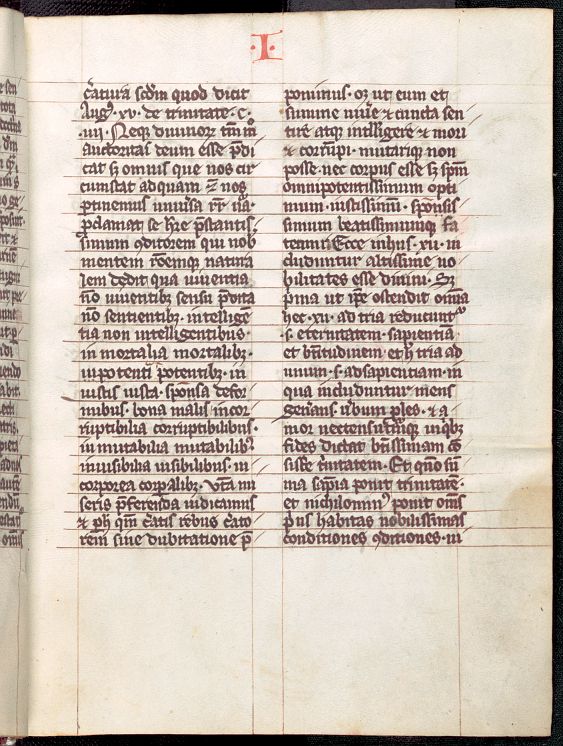 ·I·
c̄atura̅ scd̅m quod dicit
Aug⁹ xv. de trinitate. c.
.iiii. Neq̨ diuinoꝝ tm̅
auctoritas deum esse p̅di
cat ſʒ omnis que nos cir
cumstat ad quam ⁊ nos
ꝑtinemus uniu̅sa rr̅ na
ꝓclamat se h̅re p̅stantis
simum ꝯditorem qui nob
mentem ro̅emq̨ natura
lem dedit qua uiuentia
no̅ uiuentibʒ sensu p̅dita
no̅ sentientibʒ. intellige̅
tia non intelligentibus.
in mortalia mortalibʒ.
in potenti potentibʒ in
iustis iusta. speciosa defor
mibus. bona malis incor
ruptibilia corruptibilibus.
in mutabilia mutabilibʒ
inuisibilia uisibilibus. in
corporea corꝑalibʒ. beata mi
seris p̅ferenda iudicamus
⁊ ꝑ h̅ qm̅ c̅atis rebus c̅ato
rem sine dubitatione p̅
ponimus. oꝫ ut eum et
summe uiue̅ ⁊ cuncta sen
tire atq̨ intelligere ⁊ mori
⁊ corru̅pi. mutariq̨ non
posse. nec corpus esse ſʒ sp̅m
omnipotentissimum opti
mum. iustissimu̅. speciosis
simum beatissimumq̨ fa
teamur Ecce in hiis. xii. in
cluduntur altissime no
bilitates esse diuini. Sꝫ
p̅ma ut ip̅e ostendit omia
hec. xii. ad tria reducunt᷑
.s. eternitatem. sapientia̅
et bt̅itudinem et h̅ tria ad
unum .s. ad sapientiam. in
qua includuntur mens
gen̅ans. u̅bum ꝓles. ⁊ a
mor nectens utru̅q̨ in qbʒ
fides dictat bt̅issimam co̅
sist̅e t̅nitatem. Et quo̅ su̅
ma sap̅ia ponit trinitate̅.
et nichilomin⁹ ponit om̅s
p̅us habitas nobilissimas
conditiones ꝯditiones. in